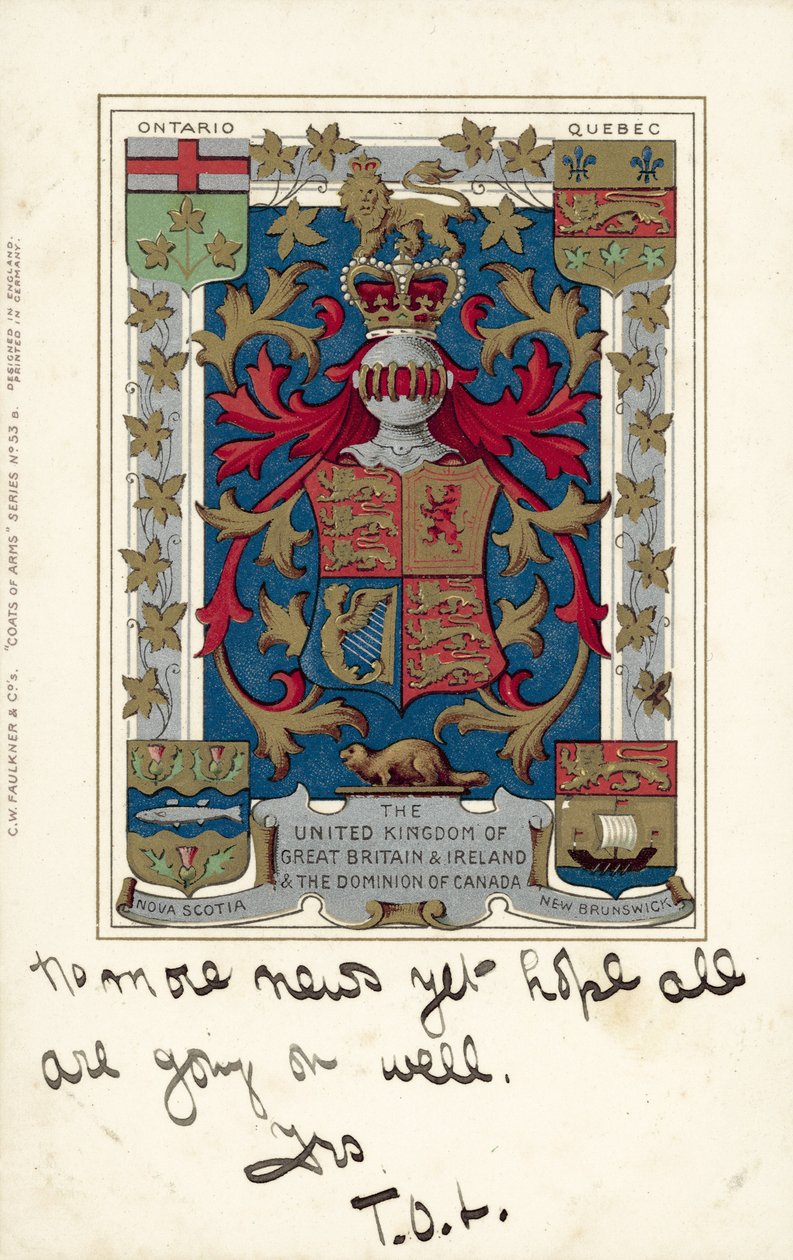 ONTARIO
QUEBEC
C.W. FAULKNER & Co's. "COATS OF ARMS" SERIES No 53 B. DESIGNED IN ENGLAND.
PRINTED IN GERMANY.
THE
UNITED KINGDOM OF
GREAT BRITAIN & IRELAND
& THE DOMINION OF CANADA
NOVA SCOTIA
NEW BRUNSWICK
No more news yet hope all
are going on well.
Yrs
T.O.L.